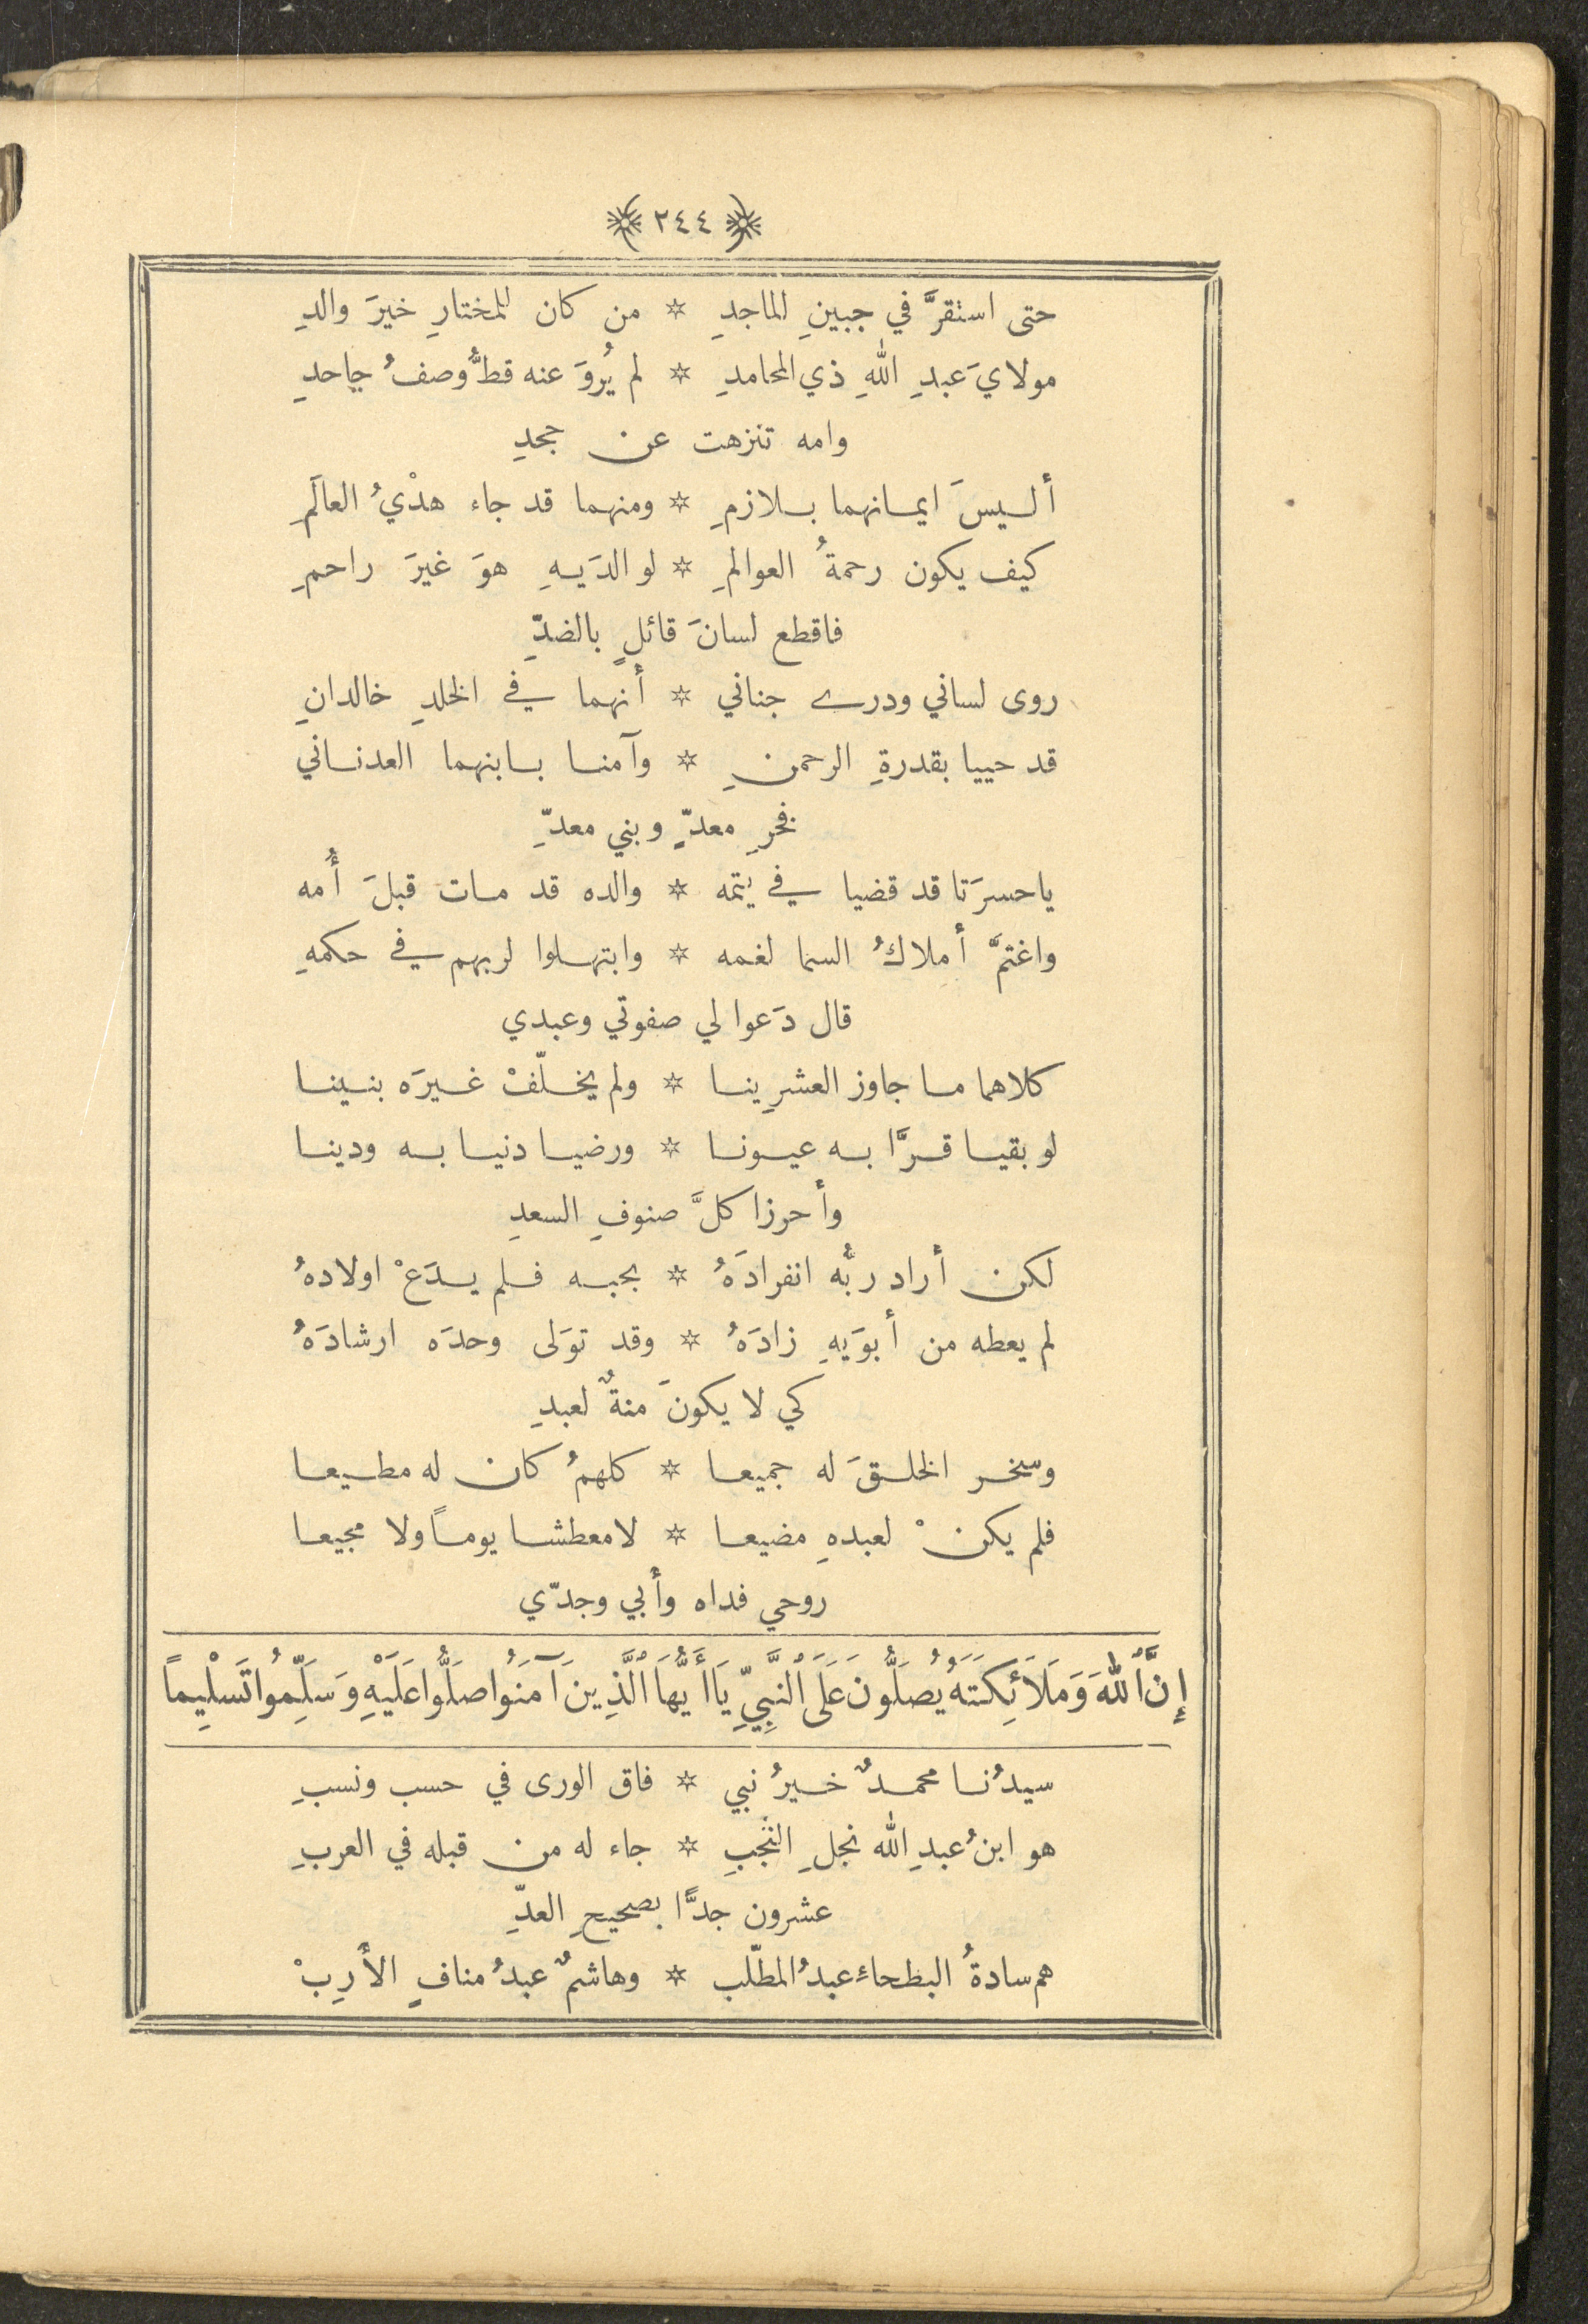 ﴿ ٢٤٤ ﴾
حتى استقرَّ في جبينِ الماجدِ * من كان للمختارِ خيرَ والدِ
مولايَ عبدِ اللهِ ذي المحامدِ * لم يُروَ عنه قطُّ وصفُ جاحدِ
وامه تنزهت عن جحدِ
أليسَ ايمانهما بلازمِ * ومنهما قد جاء هدْيُ العالَمِ
كيف يكون رحمةُ العوالمِ * لوالدَيهِ هوَ غيرَ راحمِ
فاقطع لسانَ قائلٍ بالضدِّ
روى لساني ودرى جناني * أنهما في الخلدِ خالدانِ
قد حييا بقدرةِ الرحمنِ * وآمنا بابنهما العدناني
فخرِ معدٍّ وبني معدِّ
ياحسرَتا قد قضيا في يتمه * والده قد مات قبلَ أُمه
واغتمَّ أملاكُ السما لغمه * وابتهلوا لربهم في حكمهِ
قال دَعوا لي صفوتي وعبدي
كلاهما ما جاوز العشرِينا * ولم يخلّفْ غيرَه بنينا
لو بقيا قرَّا به عيونا * ورضيا دنيا به ودينا
وأحرزا كلَّ صنوفِ السعدِ
لكن أراد ربُّه انفرادَهُ * بحبه فلم يدَعْ اولادهُ
لم يعطه من أبوَيهِ زادَهُ * وقد توَلى وحدَه ارشادَهُ
كي لا يكونَ منةٌ لعبدِ
وسخر الخلقَ له جميعا * كلهمُ كان له مطيعا
فلم يكنْ لعبدهِ مضيعا * لامعطشا يوماً ولا مجيعا
روحي فداه وأبي وجدّي
إِنَّ ٱللهَ وَمَلَائِكَتَهُ يُصَلُّونَ عَلَى ٱلنَّبِيِّ يَاأَيُّهَا ٱلَّذِينَ آمَنُوا صَلُّوا عَلَيْهِ وَسَلِّمُوا تَسْلِيماً
سيدُنا محمدٌ خيرُ نبي * فاق الورى في حسب ونسبِ
هو ابنُ عبدِ الله نجلِ النُّجبِ * جاء له من قبله في العربِ
عشرون جدًّا بصحيحِ العدِّ
هم سادةُ البطحاءِ عبدُ المطّلب * وهاشمٌ عبدُ منافٍ الأَرِبْ